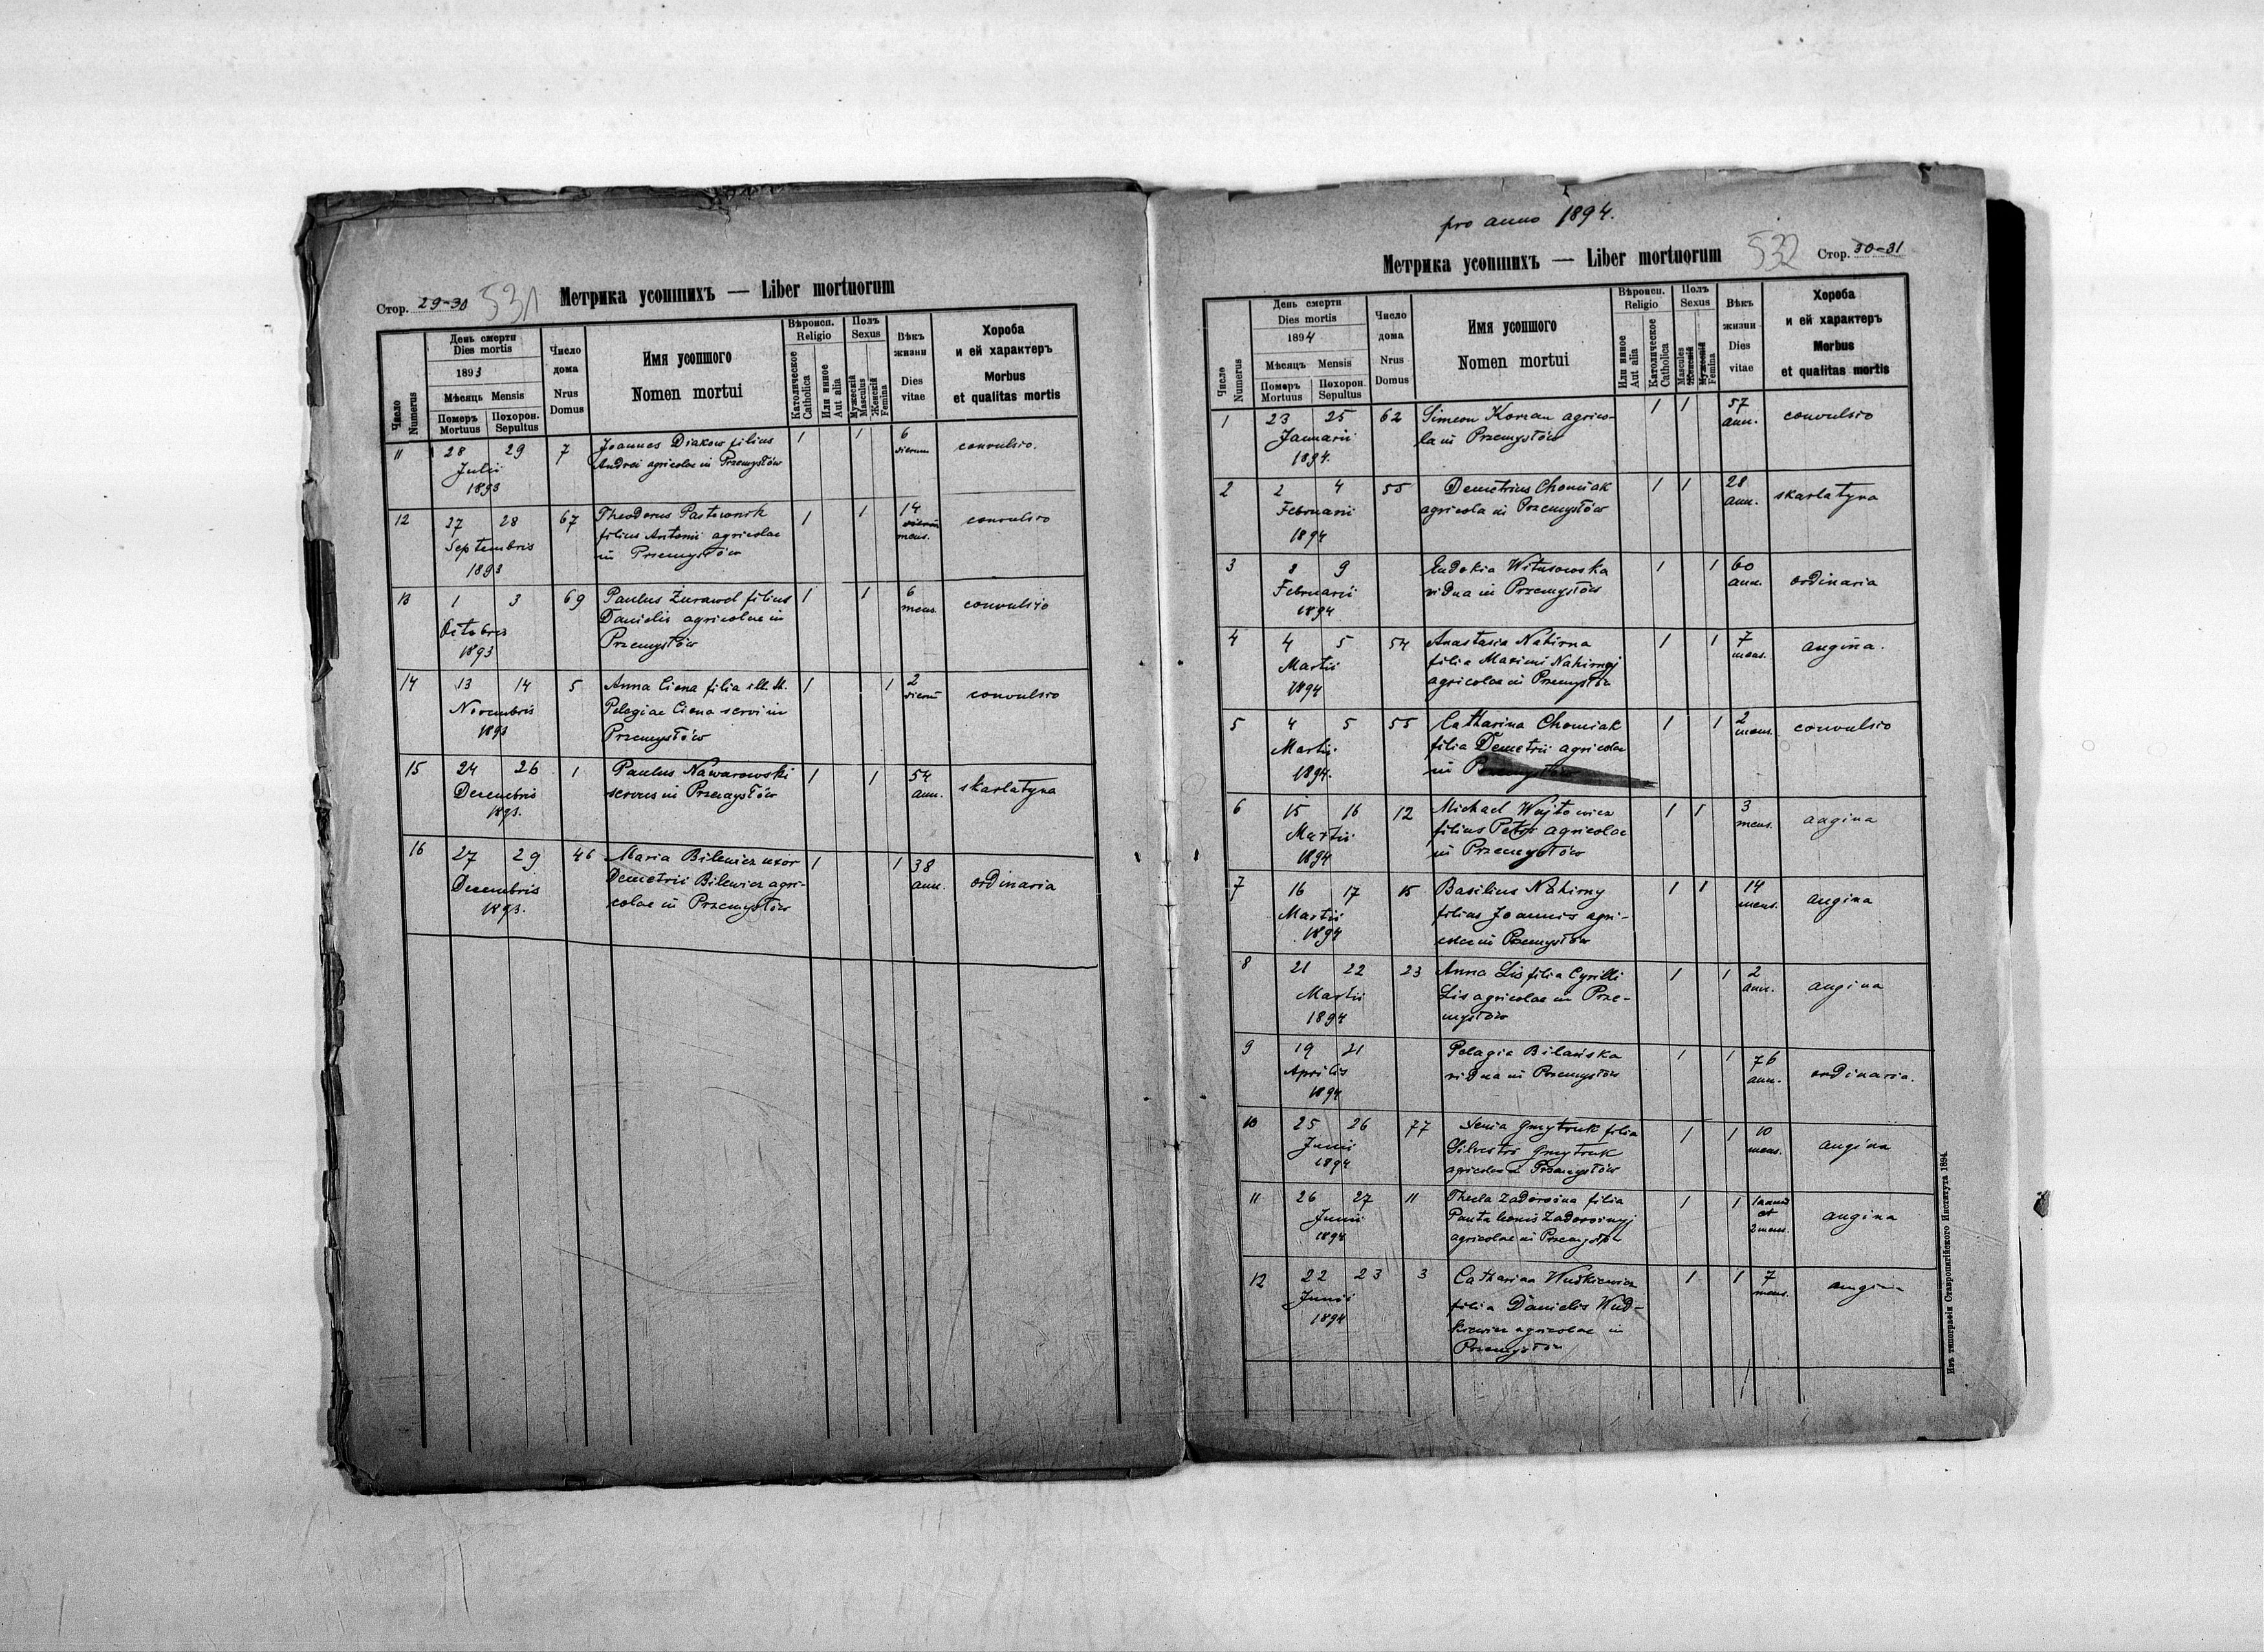 Стор. 29-30 531 Метрика усопшихъ — Liber mortuorum
Число
Numerus
День смерти
Dies mortis
1893
Мѣсяць Mensis
Померъ
Mortuus
Похорон.
Sepultus
Число
дома
Nrus
Domus
Имя усопшого
Nomen mortui
Вѣроисп.
Religio
Католическое
Catholica
Или нвное
Aut alia
Полъ
Sexus
Мужескій
Masculus
Женскій
Femina
Вѣкъ
жизни
Dies
vitae
Хороба
и ей характеръ
Morbus
et qualitas mortis
11 28 29 7 Joannes Diakow filius 1 1 6 convulsio.
Julii Andrei agricolae in Przemysłów dierum
1893
12 27 28 67 Theodorus filius Antonii agricolae 1 1 14 convulsio
Septembris in Przemysłów mens.
1893
13 1 3 69 Paulus Żurawel filius 1 1 6 convulsio
Octobris Danielis agricolae in mens.
1893 Przemysłów
14 13 14 5 Anna Ciona filia ill. th. 1 1 2 convulsio
Novembris Pelagiae Ciona servi in dierum
1893 Przemysłów
15 24 26 1 Paulus Nawarowski 1 1 54 skarlatyna
Decembris servus in Przemysłów ann.
1893.
16 27 29 46 Maria Bilewicz uxor 1 1 38 ordinaria
Decembris Demetrii Bilewicz agri- ann.
1893. colae in Przemysłów
pro anno 1894.
Метрика усопшихъ — Liber mortuorum 532 Стор. 30-31
Число
Numerus
День смерти
Dies mortis
1894
Мѣсяць Mensis
Померъ
Mortuus
Похорон.
Sepultus
Число
дома
Nrus
Domus
Имя усопшого
Nomen mortui
Вѣроисп.
Religio
Или нвное
Aut alia
Католическое
Catholica
Полъ
Sexus
Mascules
Женскій
Мужескій
Femina
Вѣкъ
жизни
Dies
vitae
Хороба
и ей характеръ
Morbus
et qualitas mortis
1 23 25 62 Simeon Korman agrico- 1 1 57 convulsio
Januarii la in Przemysłów ann.
1894.
2 2 4 55 Demetrius Chomiak 1 1 28 skarlatyna
Februarii agricola in Przemysłów ann.
1894
3 8 9 Eudokia Witusowska 1 1 60 ordinaria
Februarii vidua in Przemysłów ann.
1894
4 4 5 54 Anastasia Nahirna 1 1 7 angina.
Martii filia Maximi Nahirnyj mens.
1894 agricolae in Przemysłów
5 4 5 55 Catharina Chomiak 1 1 2 convulsio
Martii filia Demetrii agricolae mens.
1894. in Przemysłów
6 15 16 12 Michael Wujtowicz 1 1 3 angina
Martii filius Petri agricolae mens.
1894 in Przemysłów
7 16 17 15 Basilius Nahirny 1 1 14 angina
Martii filius Joannis agri- mens.
1894 colae in Przemysłów
8 21 22 23 Anna Lis filia Cyrilli 1 1 2 angina
Martii Lis agricolae in Prze- ann.
1894 mysłów
9 19 21 Pelagia Bilańska 1 1 76 ordinaria.
Aprilis vidua in Przemysłów ann.
1894
10 25 26 77 Xenia Gmytruk filia 1 1 10 angina
Junii Silvestri Gmytruk mens.
1894 agricolae in Przemysłów
11 26 27 11 Thecla Zadorożna filia 1 1 1 anni et 2 mens. angina
Junii Pantaleonis Zadorożnyj
1894 agricolae in Przemysłów
12 22 23 3 Catharina Wudkiewicz 1 1 7 angina
Junii filia Danielis Wud- mens.
1894 kiewicz agricolae in
Przemysłów
Изъ типографіи Ставропигійского Института 1894.